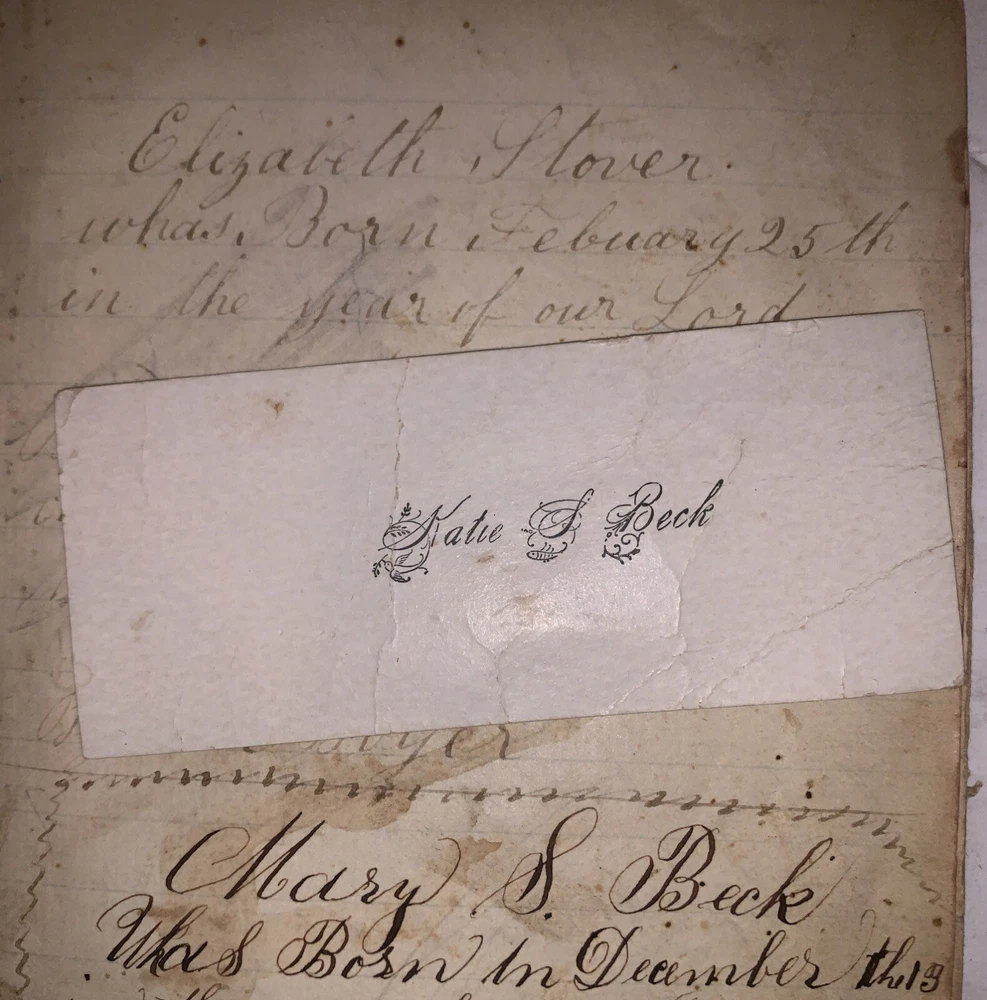 Elizabeth Stover.
whas Born Febuary 25th
in the year of our Lord
Katie S Beck
Boyer
Mary S. Beck
Whas Born in December th19